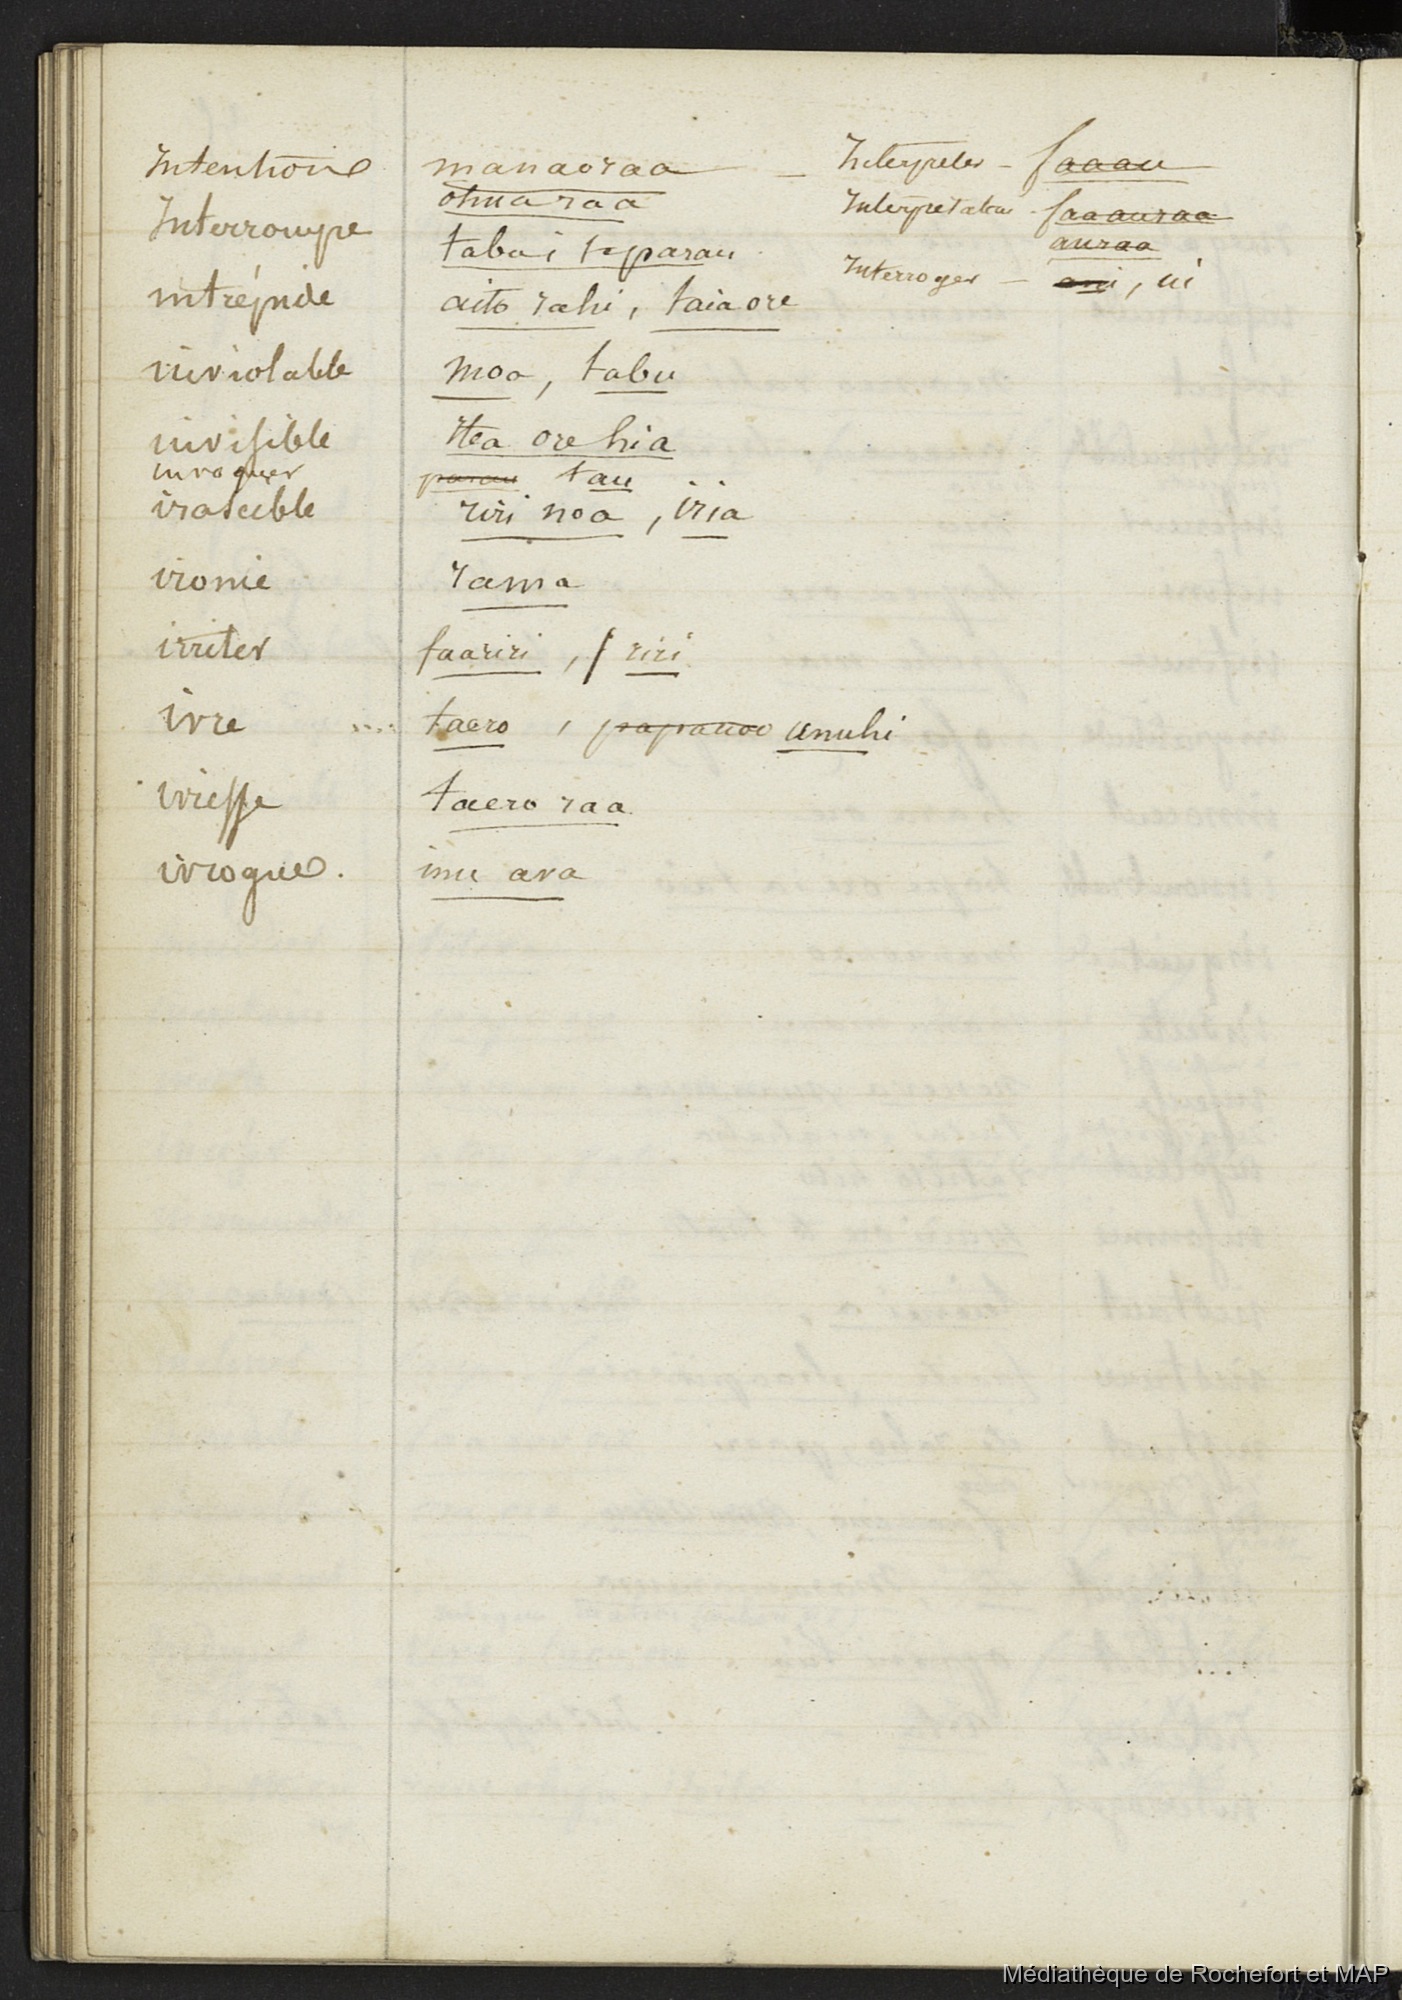 Intention manaoraa — Interpreter – faaau
opuaraa Interpretation – faaauraa
Interrompre tabai te parau auraa
Interroger — ani, ui
intrépide aito rahi, taiaore
inviolable moa, tabu
invisible itea ore hia
invoquer parau tau
irascible riri noa, iria
ironie rama
irriter faariri, f riri
ivre .... taero, papauoo anuhi
ivresse taero raa
ivrogne. inu ava
Médiathèque de Rochefort et MAP